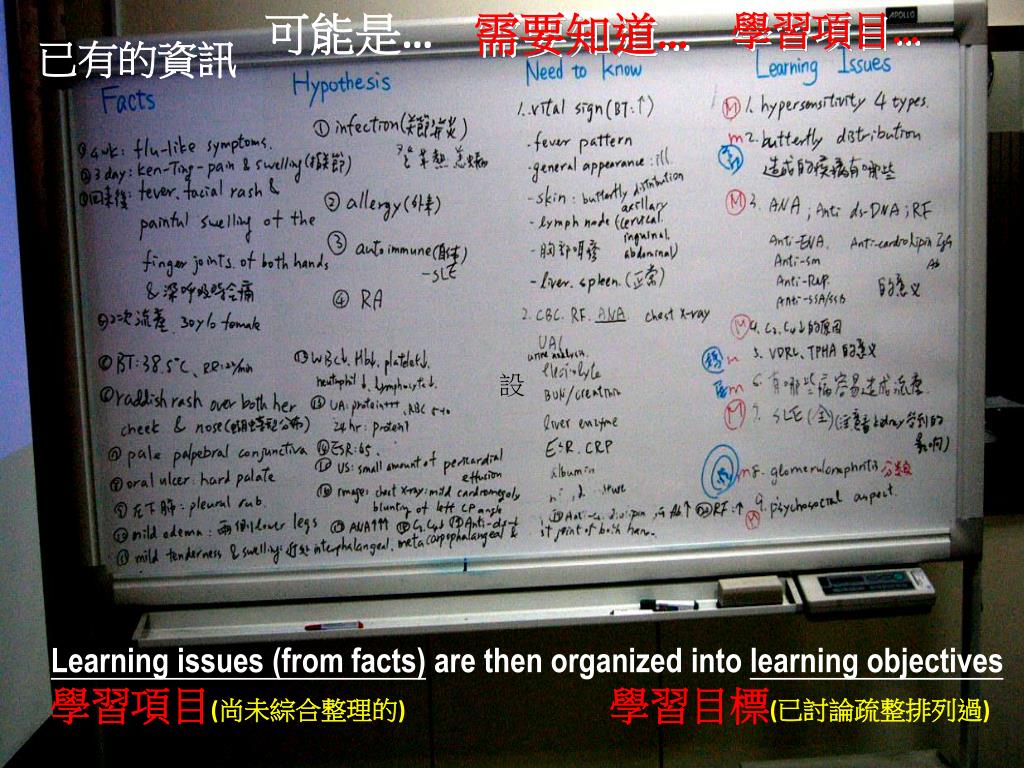 已有的資訊
可能是...
需要知道...
學習項目...
APOLLO
Facts
4wk: flu-like symptoms.
3 day: ken-Ting-pain & swelling
回來後: fever, facial rash &
painful swelling of the
finger joints of both hands
& 深呼吸時會痛
2次流產, 30 y/o female
BT: 38.5°C, RR:
raddish rash over both her
cheek & nose
pale palpebral conjunctiva
oral ulcer: hard palate
左下肺: pleural rub.
mild edema: 兩側 lower legs
mild tenderness & swelling: interphalangeal, metacarpophalangeal &
Hypothesis
① infection(關節發炎)
② allergy(外來)
③ autoimmune(自體)
-SLE
④ RA
WBC↓, Hb↓, platelet↓
neutrophil↓, Lymphocyte↓.
UA: protein+++, RBC
24 hr: protein↑
ESR: 65.
US: small amount of pericardial
effusion
image: chest x-ray: mild cardiomegaly
blunting of left CP angle
ANA↑↑↑ C3, C4↓ Anti-ds-
設
Need to know
1. vital sign (BT:↑)
-fever pattern
-general appearance: ill
-skin: butterfly distribution
-lymph node (cervical
axillary
inguinal
abdominal)
-胸部
-liver, spleen (正常)
2. CBC. RF. ANA chest x-ray
UA(
urine analysis.
Electrolyte
BUN/creatinin
liver enzyme
ESR, CRP
albumin
RF:↑
joint of both hand.
Learning Issues
M 1. hypersensitivity 4 types.
m 2. butterfly distribution
造成的疾病有哪些
M 3. ANA; Anti ds-DNA; RF
Anti-ENA. Anti-cardiolipin IgG
Ab
Anti-Sm
Anti-RNP
Anti-SSA/SSB 的意義
M 4. C3, C4↓的原因
m 5. VDRL, TPHA 的意義
m 6. 有哪些病容易造成流產.
M 7. SLE (全)
m 8. glomerulonephritis 分類
M 9. psychosocial aspect.
Learning issues (from facts) are then organized into learning objectives
學習項目(尚未綜合整理的) 學習目標(已討論疏整排列過)